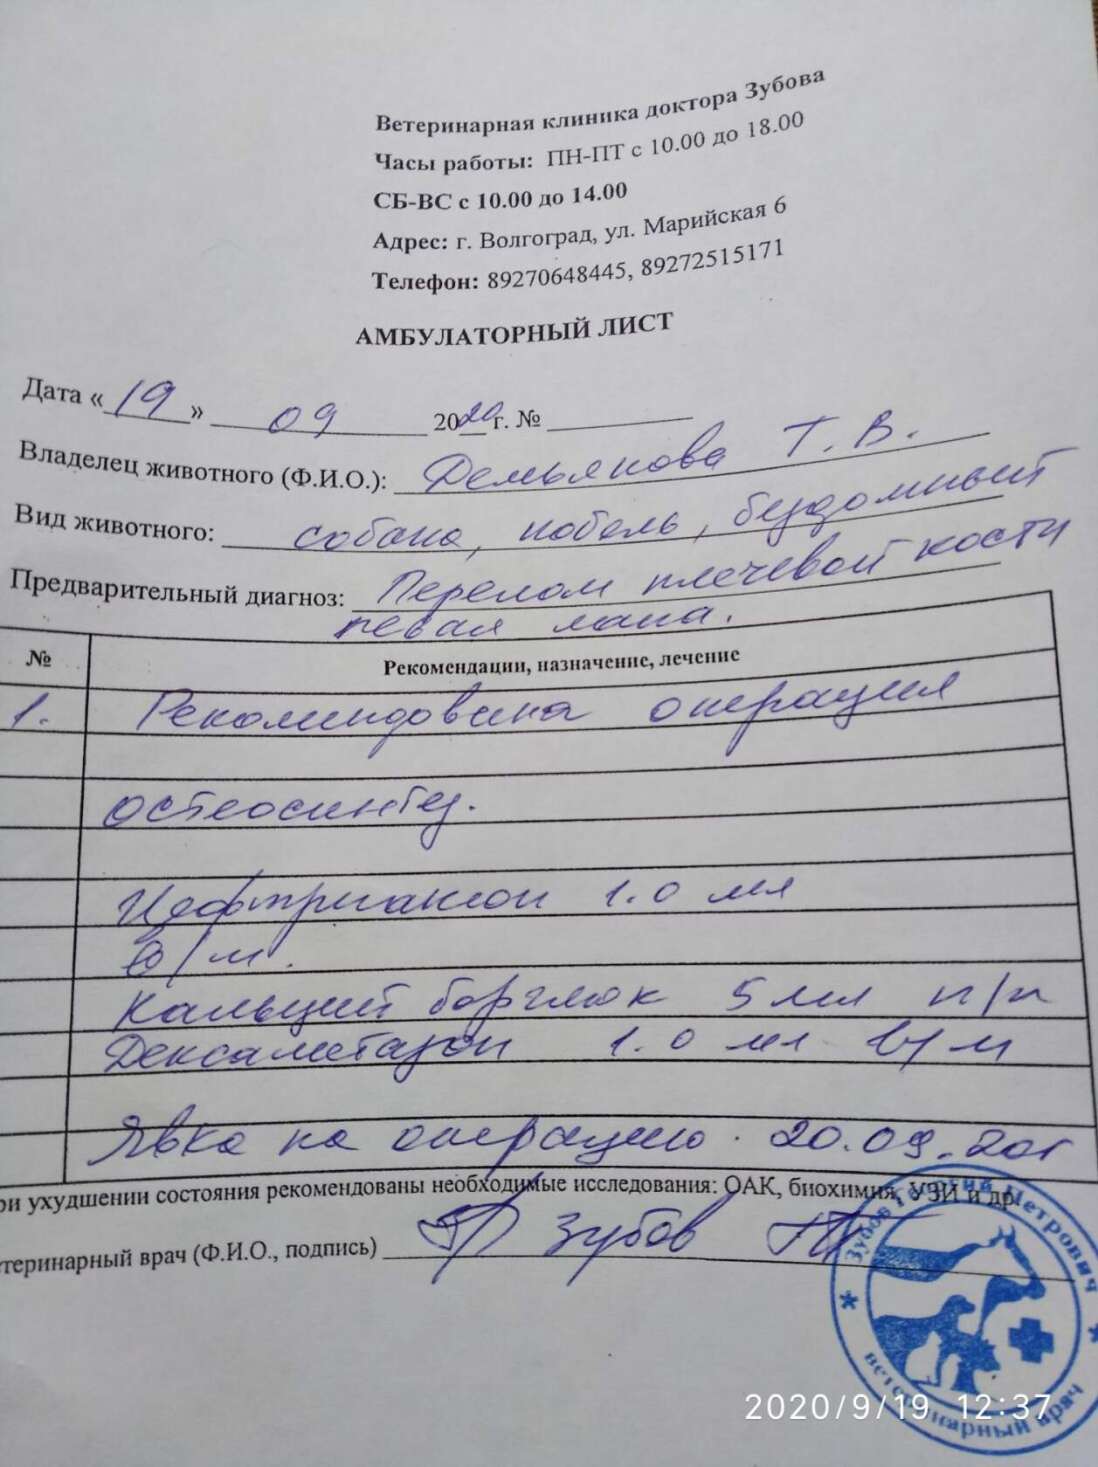 Ветеринарная клиника доктора Зубова
Часы работы: ПН-ПТ с 10.00 до 18.00
СБ-ВС с 10.00 до 14.00
Адрес: г. Волгоград, ул. Марийская 6
Телефон: 89270648445, 89272515171
АМБУЛАТОРНЫЙ ЛИСТ
Дата «19» 09 2020 г. №
Владелец животного (Ф.И.О.): Демьянова Т. В.
Вид животного: собака, кобель, бездомный
Предварительный диагноз: Перелом плечевой кости
левая лапа.
№ Рекомендации, назначение, лечение
1. Рекомендована операция
остеосинтез.
Цефтриаксон 1.0 мл
в/м.
Кальций борглюк 5 мл п/к
Дексаметазон 1.0 мл в/м
Явка на операцию. 20.09.20г
ри ухудшении состояния рекомендованы необходимые исследования: ОАК, биохимия, УЗИ и др.
теринарный врач (Ф.И.О., подпись) Зубов ГП
Зубов Георгий Петрович
ветеринарный врач
2020/9/19 12:37